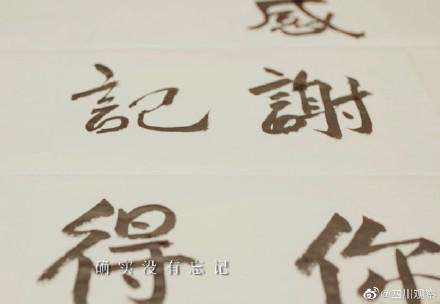 感謝你
記得
确实没有忘记
@四川观察